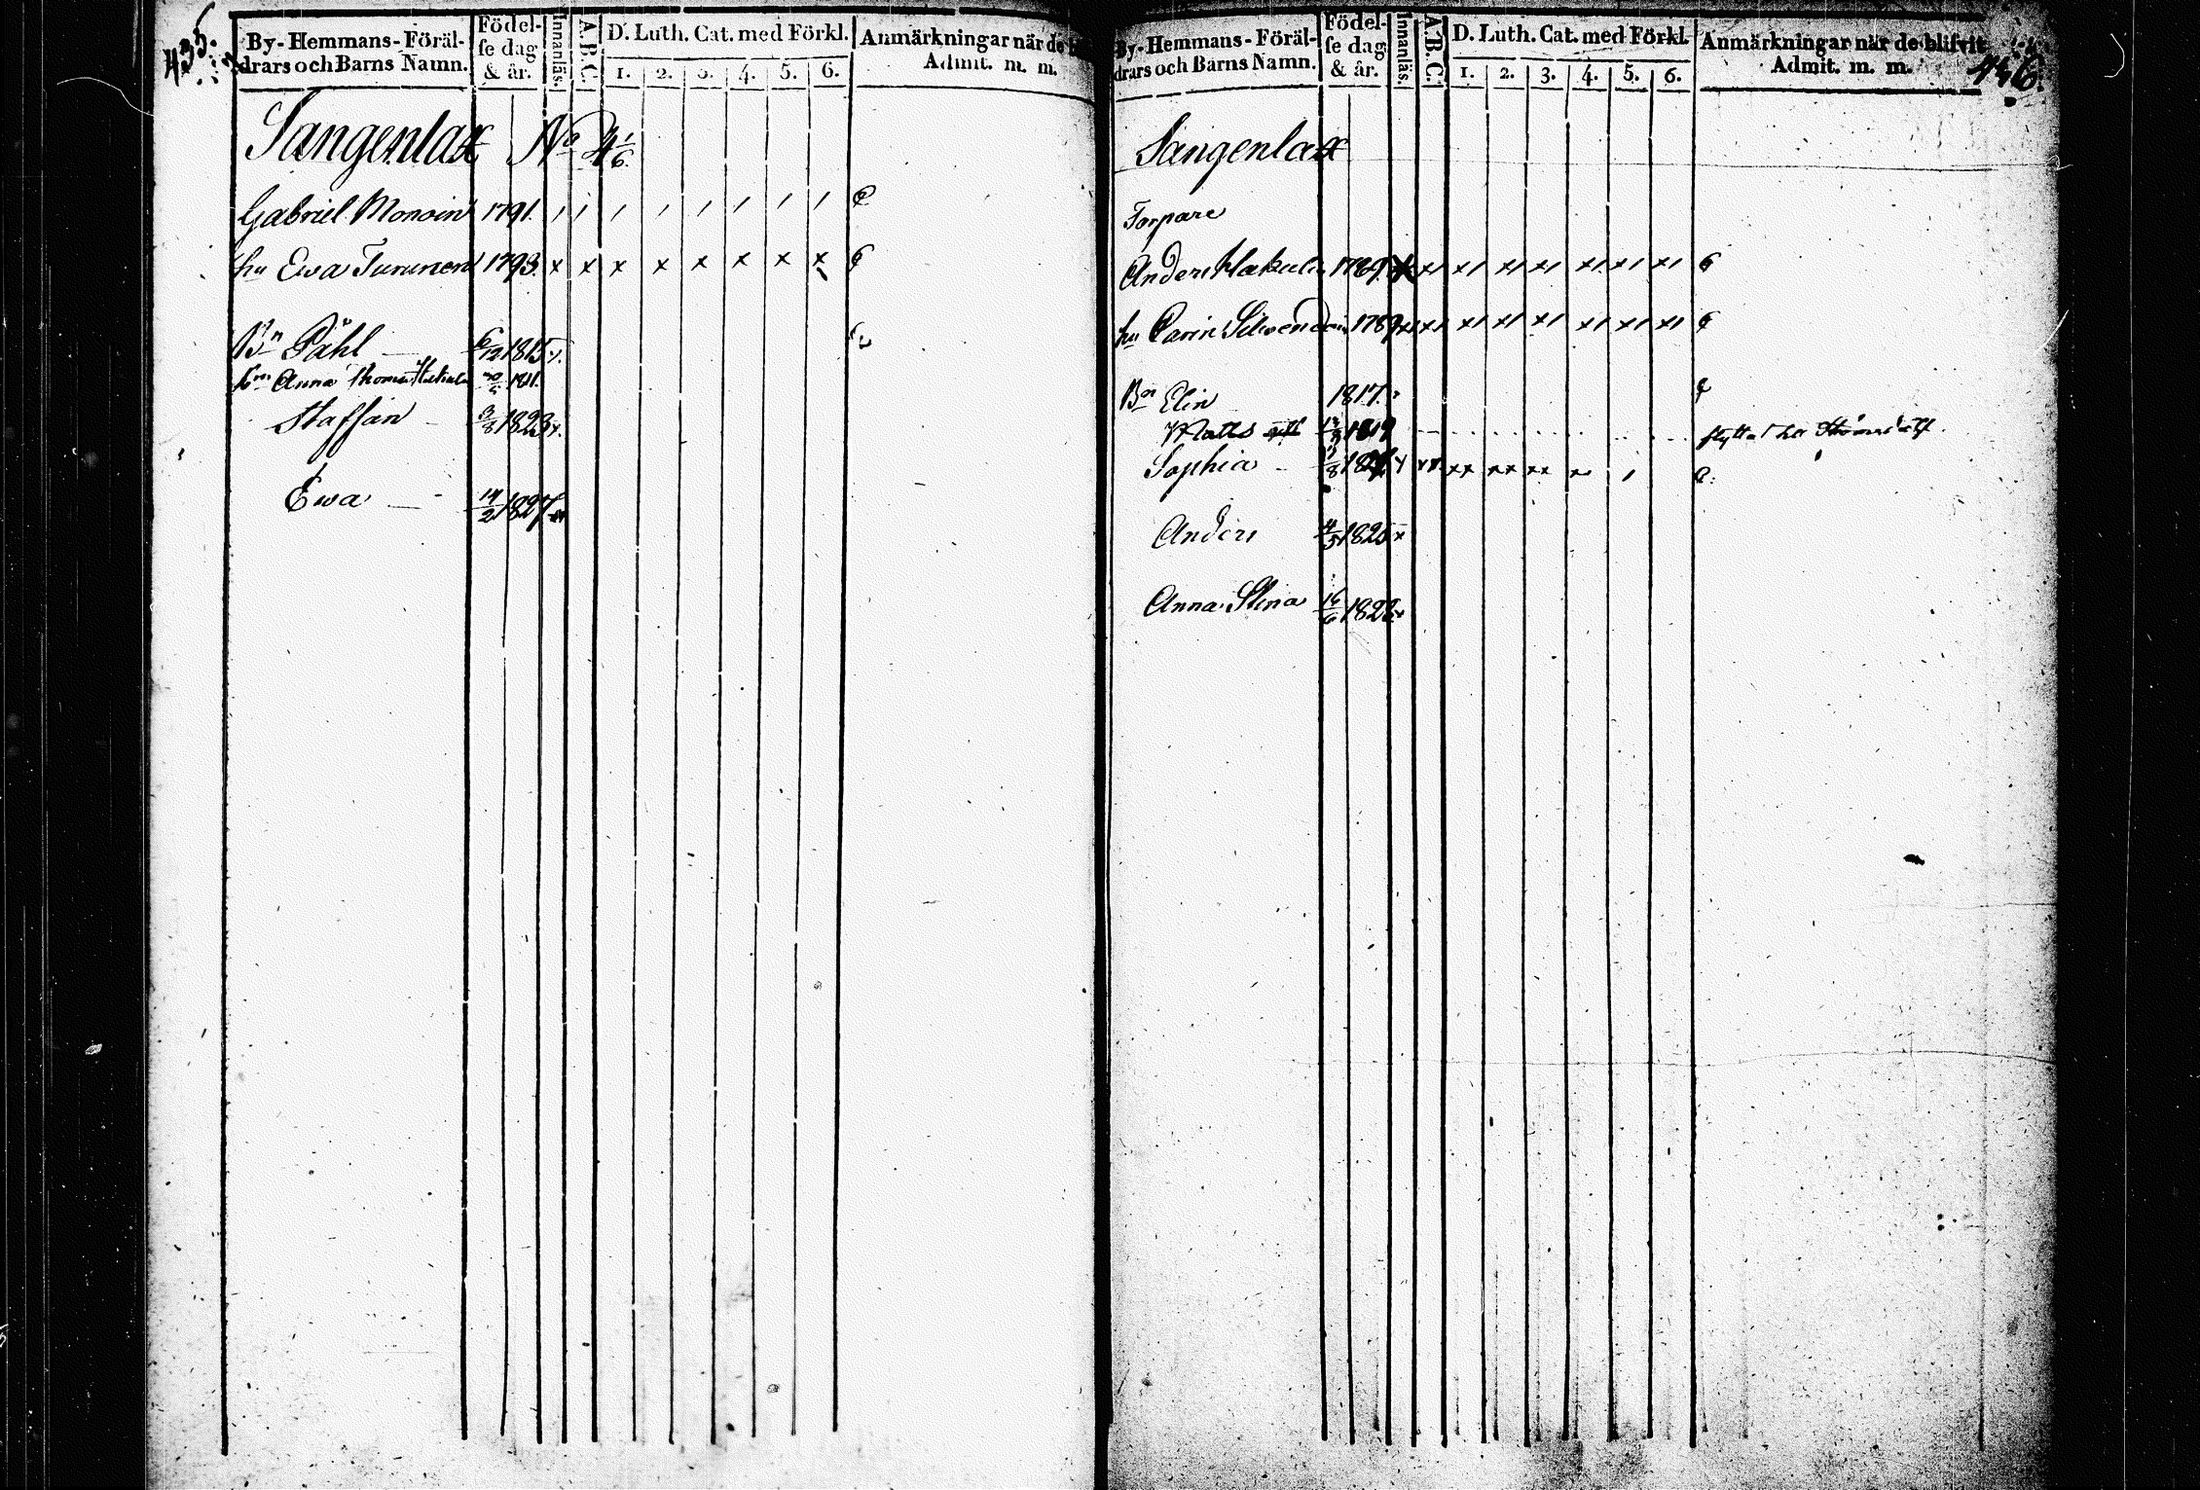 435.
By-Hemmans-Föräl-
drars och Barns Namn.
Födel-
se dag
& år.
Innanläs.
A.B.C.
D. Luth. Cat. med Förkl.
1. 2. 3. 4. 5. 6.
Anmärkningar när de
Admit. m. m.
Sangenlax No 4 1/6
Gabriel Monoin 1791.
hu Ewa Turunen 1793. x x x x x x x x
Bn Påhl 6/12 1815
Anna 1811.
Staffan 3/8 1823 x.
Ewa 14/2 1827
436.
By-Hemmans-Föräl-
drars och Barns Namn.
Födel-
se dag
& år.
Innanläs.
A.B.C.
D. Luth. Cat. med Förkl.
1. 2. 3. 4. 5. 6.
Anmärkningar när de blifvit
Admit. m. m.
Sangenlax
Torpare
Anders 1789.
hu Carin 1789
Bn Elin 1817.
Matts 1819
Sophia
Anders 4/5 1825 x
Anna Stina 16/6 1828